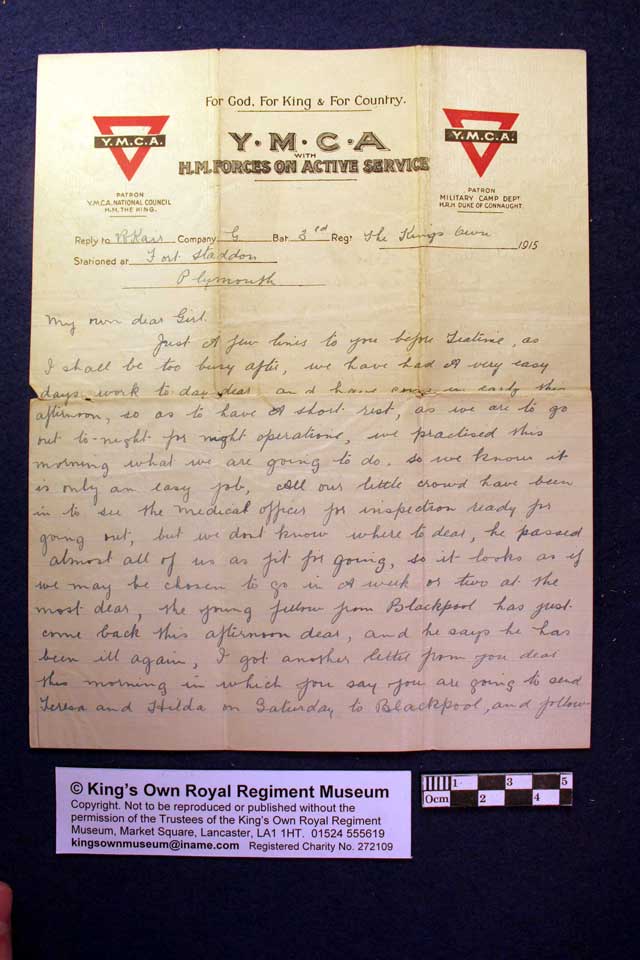 For God, For King & For Country.
Y.M.C.A.
Y·M·C·A
WITH
H.M. FORCES ON ACTIVE SERVICE
Y.M.C.A.
PATRON
Y.M.C.A. NATIONAL COUNCIL
H.M. THE KING.
PATRON
MILITARY CAMP DEPT
H.R.H DUKE OF CONNAUGHT.
Reply to Company G Bat 3rd Regt The Kings Own 1915
Stationed at Fort Staddon
Plymouth
My own dear Girl.
Just A few lines to you before Teatime, as
I shall be too busy after, we have had A very easy
days work to-day dear and have come in early this
afternoon, so as to have A short rest, as we are to go
out to-night for night operations, we practised this
morning what we are going to do. so we know it
is only an easy job, All our little crowd have been
in to see the Medical officer for inspection ready for
going out, but we dont know where to dear, he passed
almost all of us as fit for going, so it looks as if
we may be chosen to go in A week or two at the
most dear, the young fellow from Blackpool has just
come back this afternoon dear, and he says he has
been ill again, I got another letter from you dear
this morning in which you say you are going to send
Teresa and Hilda on Saturday to Blackpool, and follow
© King's Own Royal Regiment Museum
Copyright. Not to be reproduced or published without the
permission of the Trustees of the King's Own Royal Regiment
Museum, Market Square, Lancaster, LA1 1HT. 01524 555619
kingsownmuseum@iname.com Registered Charity No. 272109
0cm 1 2 3 4 5